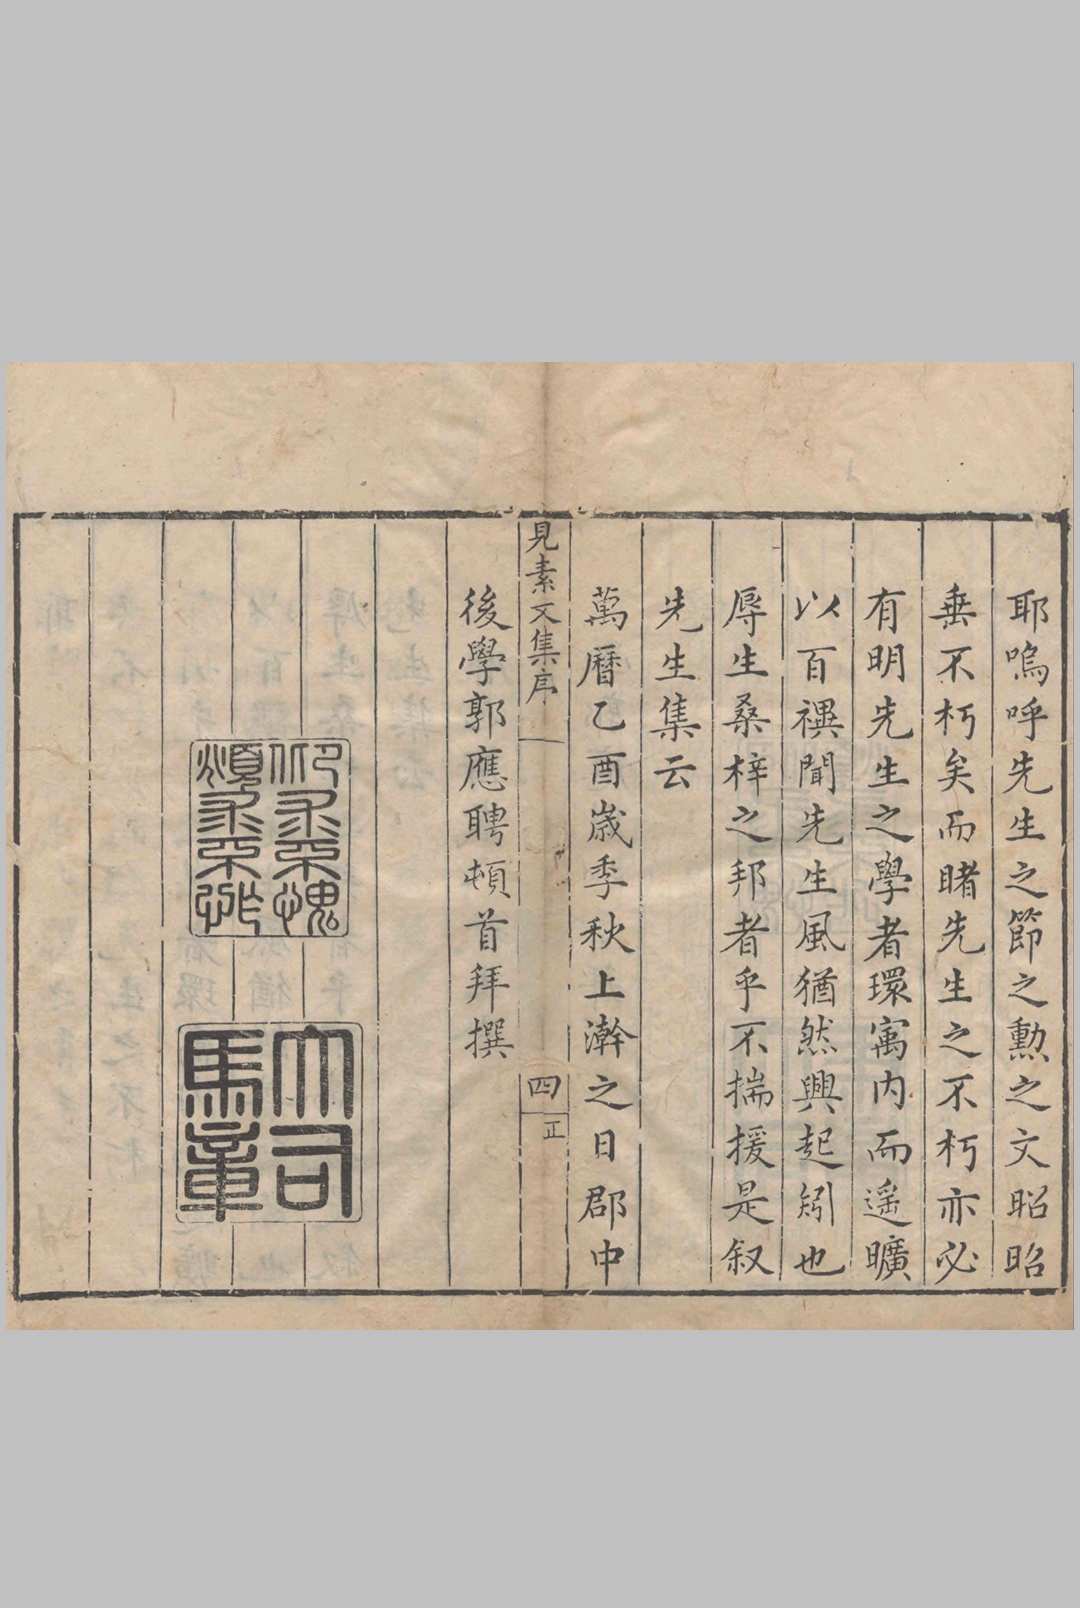 耶嗚呼先生之節之勲之文昭昭
垂不朽矣而睹先生之不朽亦必
有明先生之學者環寓内而遥曠
以百禩聞先生風猶然興起矧也
辱生桑梓之邦者乎不揣援是叙
先生集云
萬曆乙酉歲季秋上澣之日郡中
見素文集序
四
正
後學郭應聘頓首拜撰
大司馬章